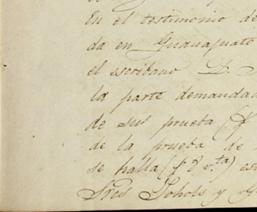 En el testimonio de
da en Guanajuato
el escribano D.
la parte demanda
de sus prueba (f
de la prueba de
se halla (f 2 v.ta) es
Sres. y